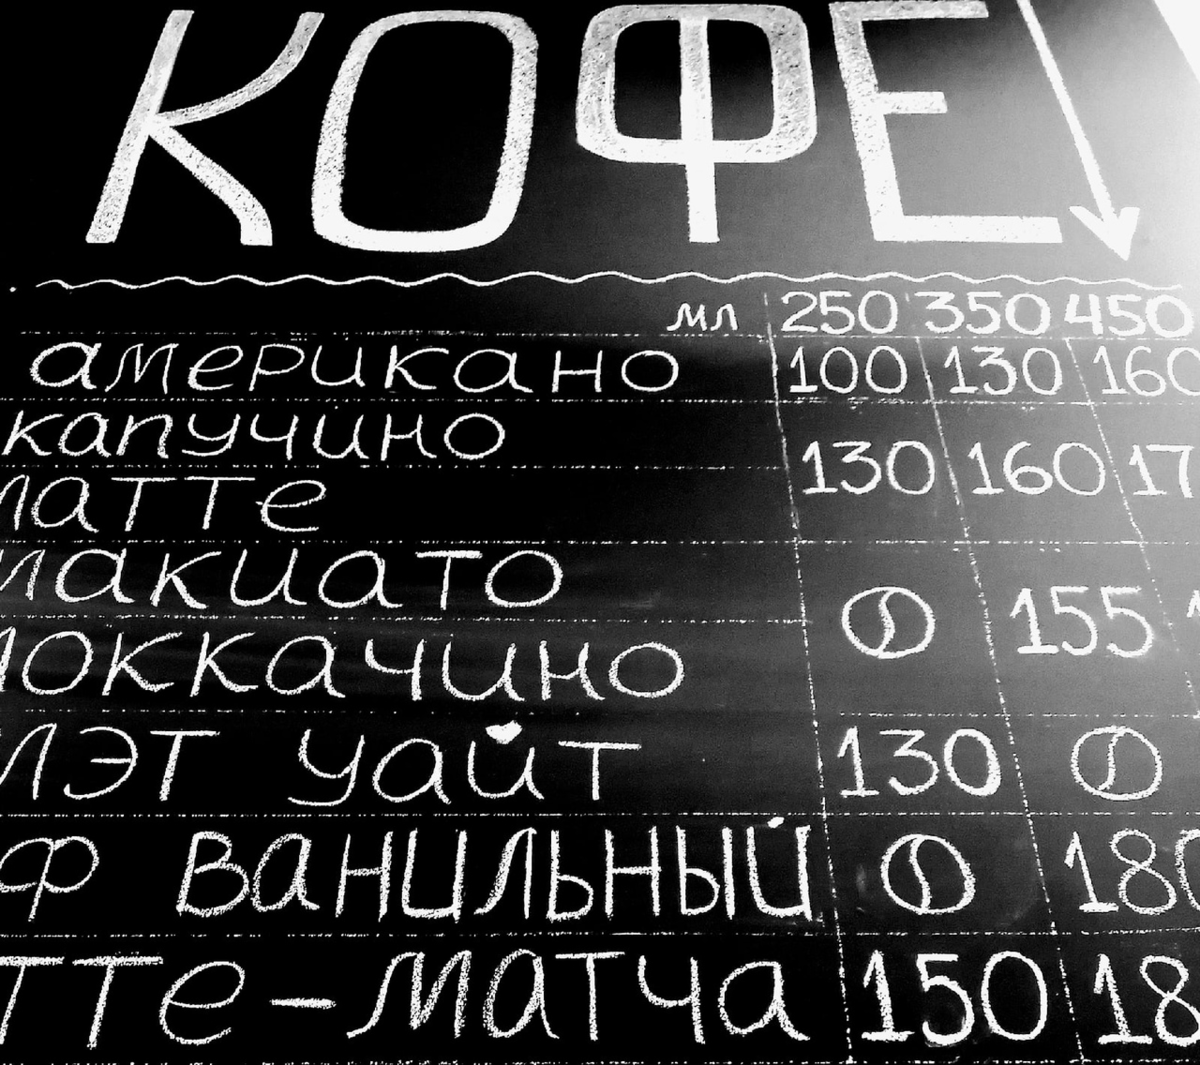 КОФЕ
мл 250 350 450
американо 100 130 160
капучино
латте 130 160
макиато
моккачино 155
флэт уайт 130
ванильный
латте-матча 150